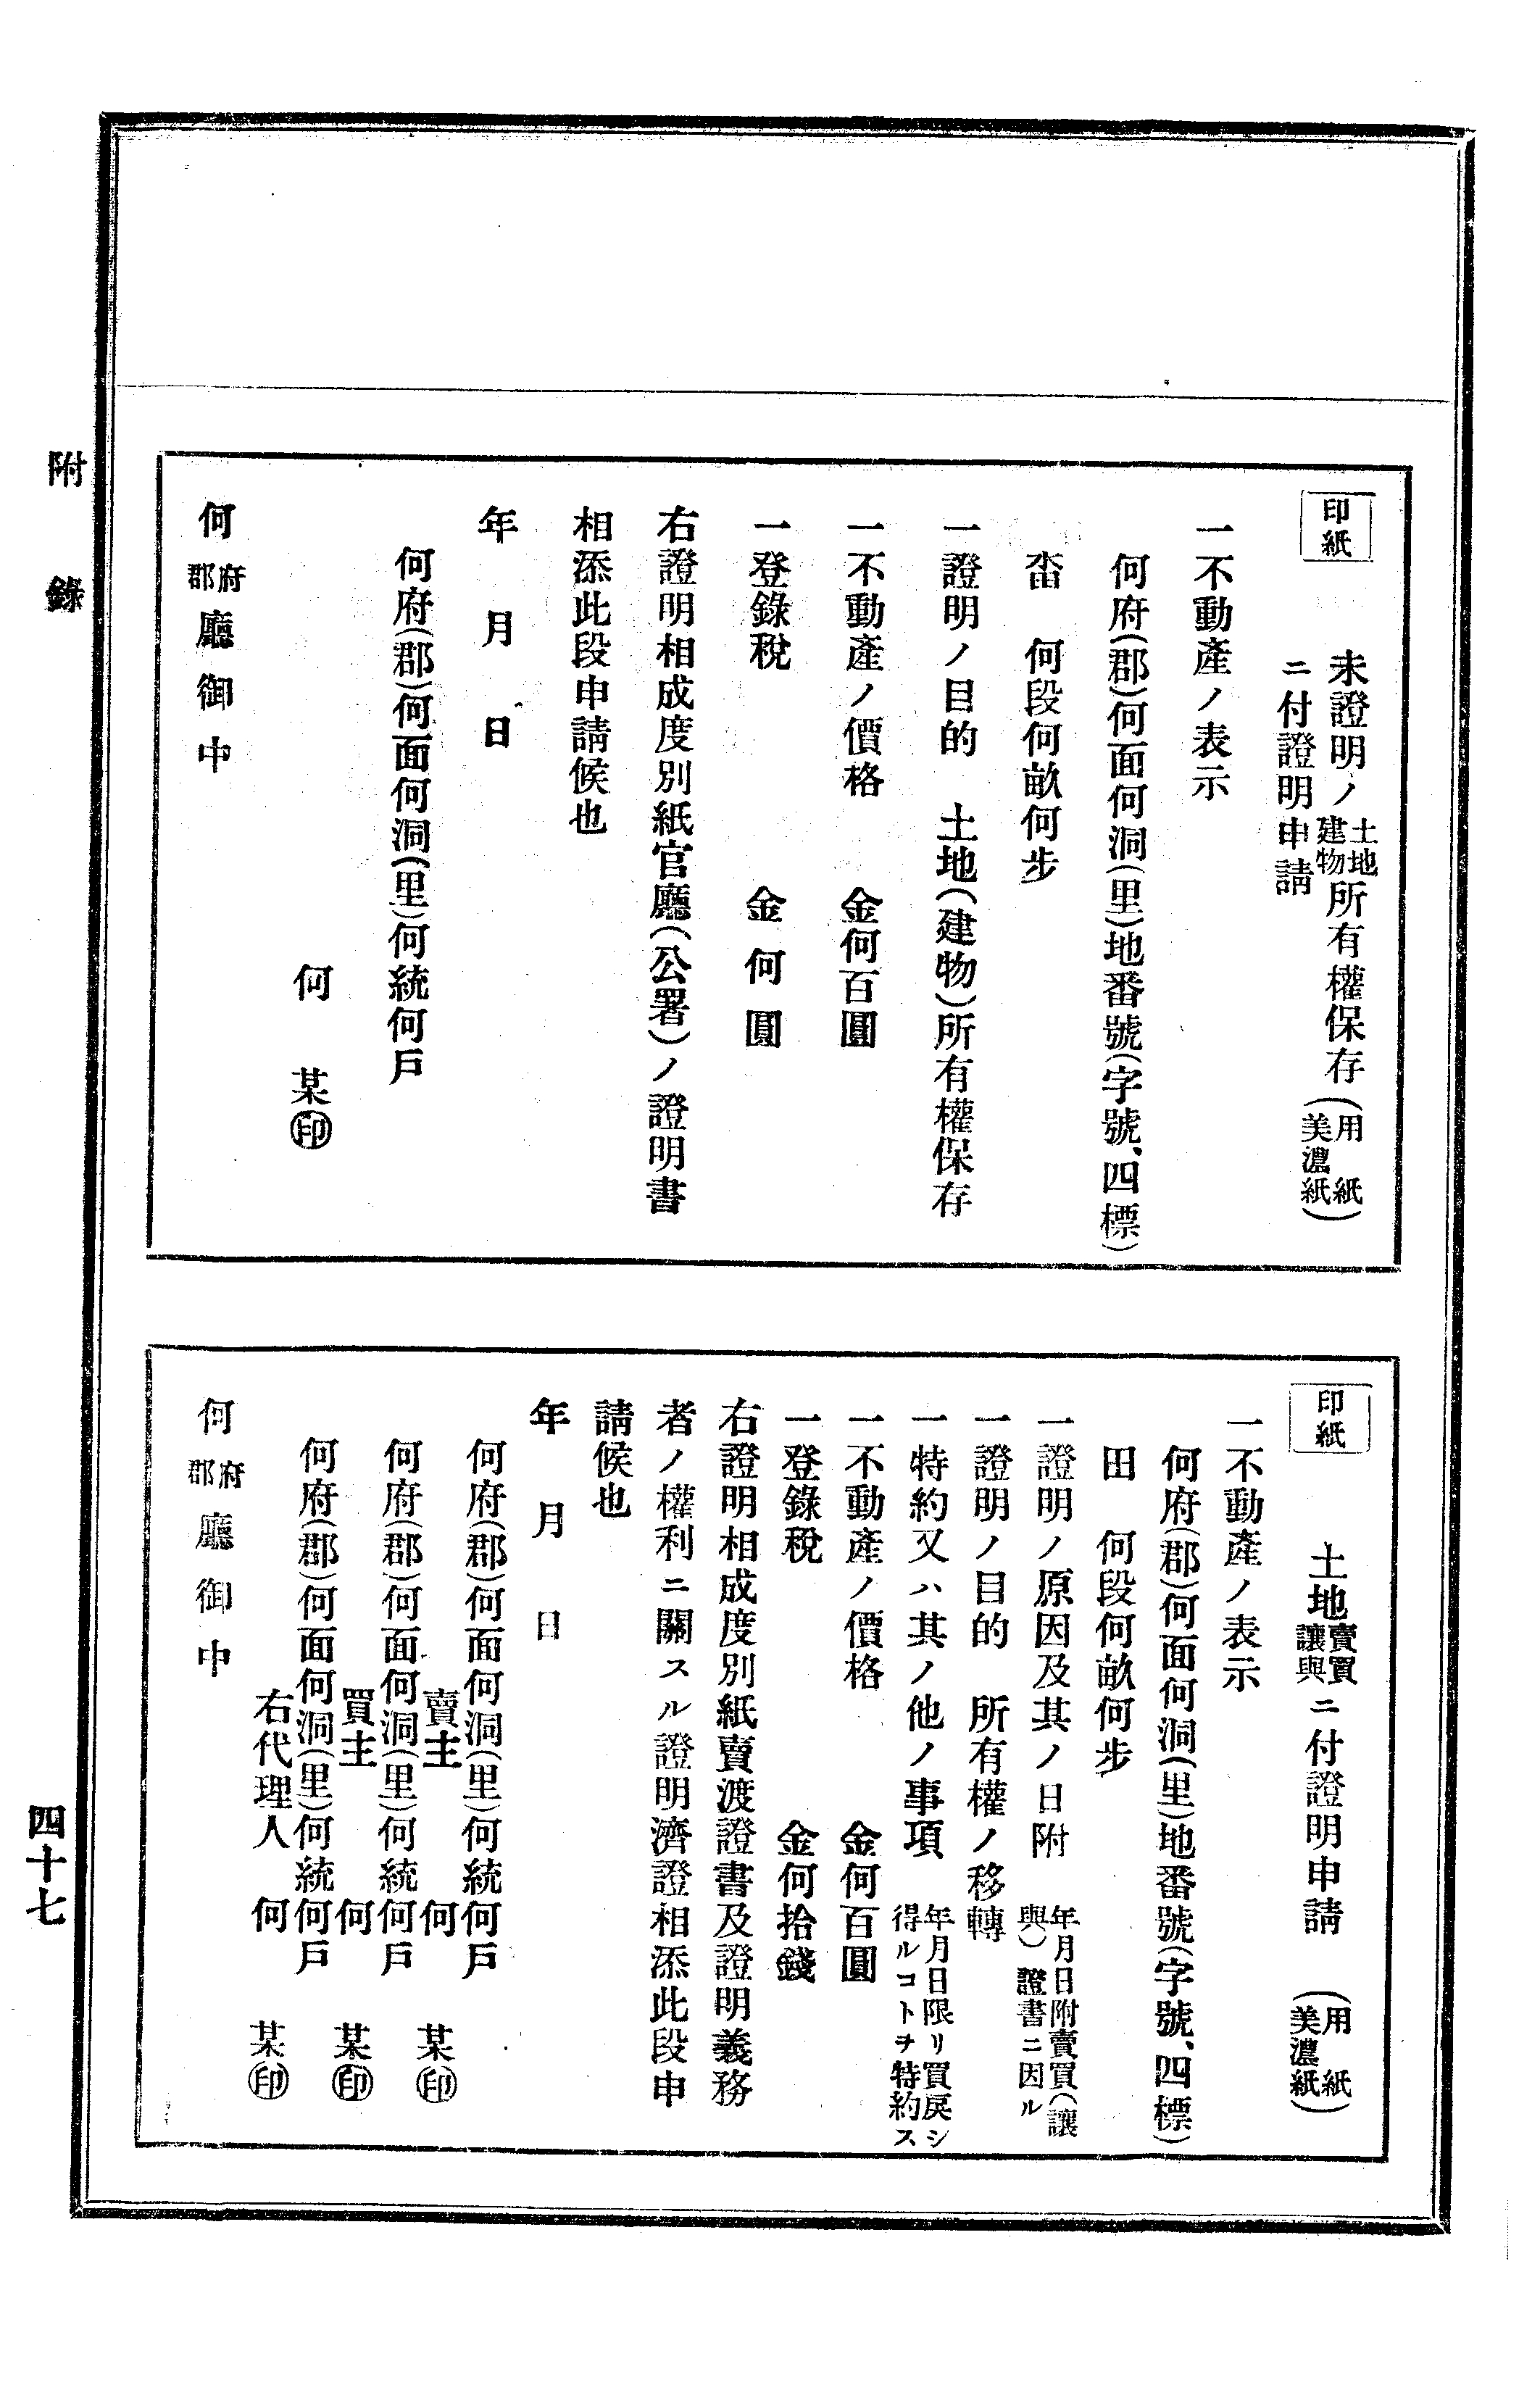 印紙
未證明ノ土地建物所有權保存(用紙美濃紙)
ニ付證明申請
一不動產ノ表示
何府(郡)何面何洞(里)地番號(字號、四標)
畓 何段何畝何步
一證明ノ目的 土地(建物)所有權保存
一不動產ノ價格 金何百圓
一登錄稅 金何圓
右證明相成度別紙官廳(公署)ノ證明書
相添此段申請候也
年 月 日
何府(郡)何面何洞(里)何統何戶
何 某㊞
何府郡廳御中
印紙
土地賣買讓與ニ付證明申請 (用紙美濃紙)
一不動產ノ表示
何府(郡)何面何洞(里)地番號(字號、四標)
田 何段何畝何步
一證明ノ原因及其ノ日附 年月日附賣買(讓與)證書ニ因ル
一證明ノ目的 所有權ノ移轉
一特約又ハ其ノ他ノ事項 年月日限リ買戾シ得ルコトヲ特約ス
一不動產ノ價格 金何百圓
一登錄稅 金何拾錢
右證明相成度別紙賣渡證書及證明義務
者ノ權利ニ關スル證明濟證相添此段申
請候也
年 月 日
何府(郡)何面何洞(里)何統何戶
賣主 何 某㊞
何府(郡)何面何洞(里)何統何戶
買主 何 某㊞
何府(郡)何面何洞(里)何統何戶
右代理人 何 某㊞
何府郡廳御中
附錄
四十七